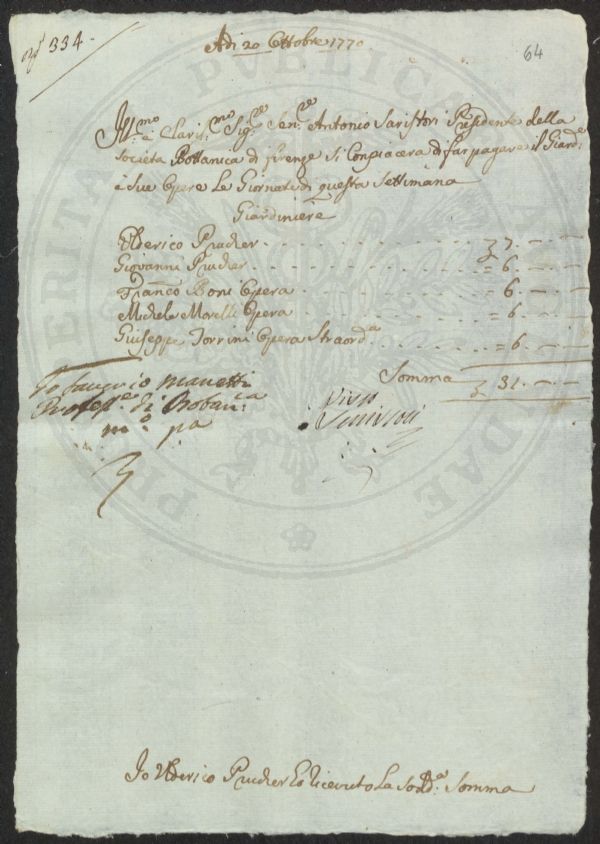 334
Adi 20 Ottobre 1770
64
Ill.mo e Claris.mo Sig.re Sen.re Antonio Saristori Presidente della
Societa Bottanica di firenze Si Conpiacera di far pagare il Giard.e
e Sue Opere Le Giornate di questa Settimana
Giardiniere
Ulderico Prucker 7
Giovanni Prucker = 6
Franco Boni Opera 6
Michele Morelli Opera = 6
Giuseppe Torrini Opera Straord.a = 6
Somma 31
Io Saverio Manetti
Profess.e di Botanica
m.o pa
Visto
Io Ulderico Prucker ho ricevuto La Sod.a Somma
PROSPERITATI PUBLICAE AUGENDAE